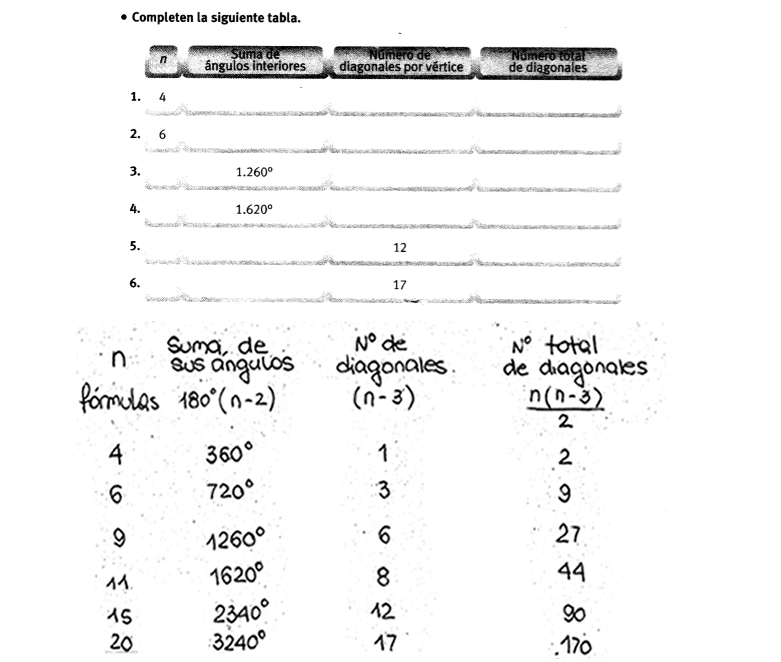 • Completen la siguiente tabla.
n Suma de ángulos interiores Número de diagonales por vértice Número total de diagonales
1. 4
2. 6
3. 1.260º
4. 1.620º
5. 12
6. 17
n Suma de sus ángulos Nº de diagonales. Nº total de diagonales
fórmulas 180°(n-2) (n-3) n(n-3)/2
4 360° 1 2
6 720° 3 9
9 1260° 6 27
11 1620° 8 44
15 2340° 12 90
20 3240° 17 170